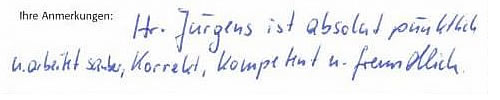 Ihre Anmerkungen: Hr. Jürgens ist absolut pünktlich
u. arbeitet sauber, korrekt, kompetent u. freundlich.